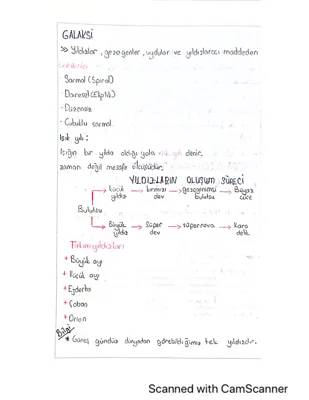 GALAKSİ
>> Yıldızlar, gezegenler, uydular ve yıldızlarası maddeden
Sarmal (Spiral)
Dairesel (Eliptik)
- Düzensiz
- Çubuklu sarmal.
Işık yılı:
Işığın bir yılda aldığı yola ışık yılı denir.
zaman değil mesafe ölçüsüdür.
YILDIZLARIN OLUŞUM SÜRECİ
küçük yıldız → kırmızı dev → gezegenimsi bulutsu → Beyaz cüce
Bulutsu
Büyük yıldız → Süper dev → süpernova → kara delik
Takımyıldızları
+ Büyük ayı
+ Küçük ayı
+ Ejderha
+ Çoban
+ Orion
Bilgi
* Güneş gündüz dünyadan görebildiğimiz tek yıldızdır.
Scanned with CamScanner